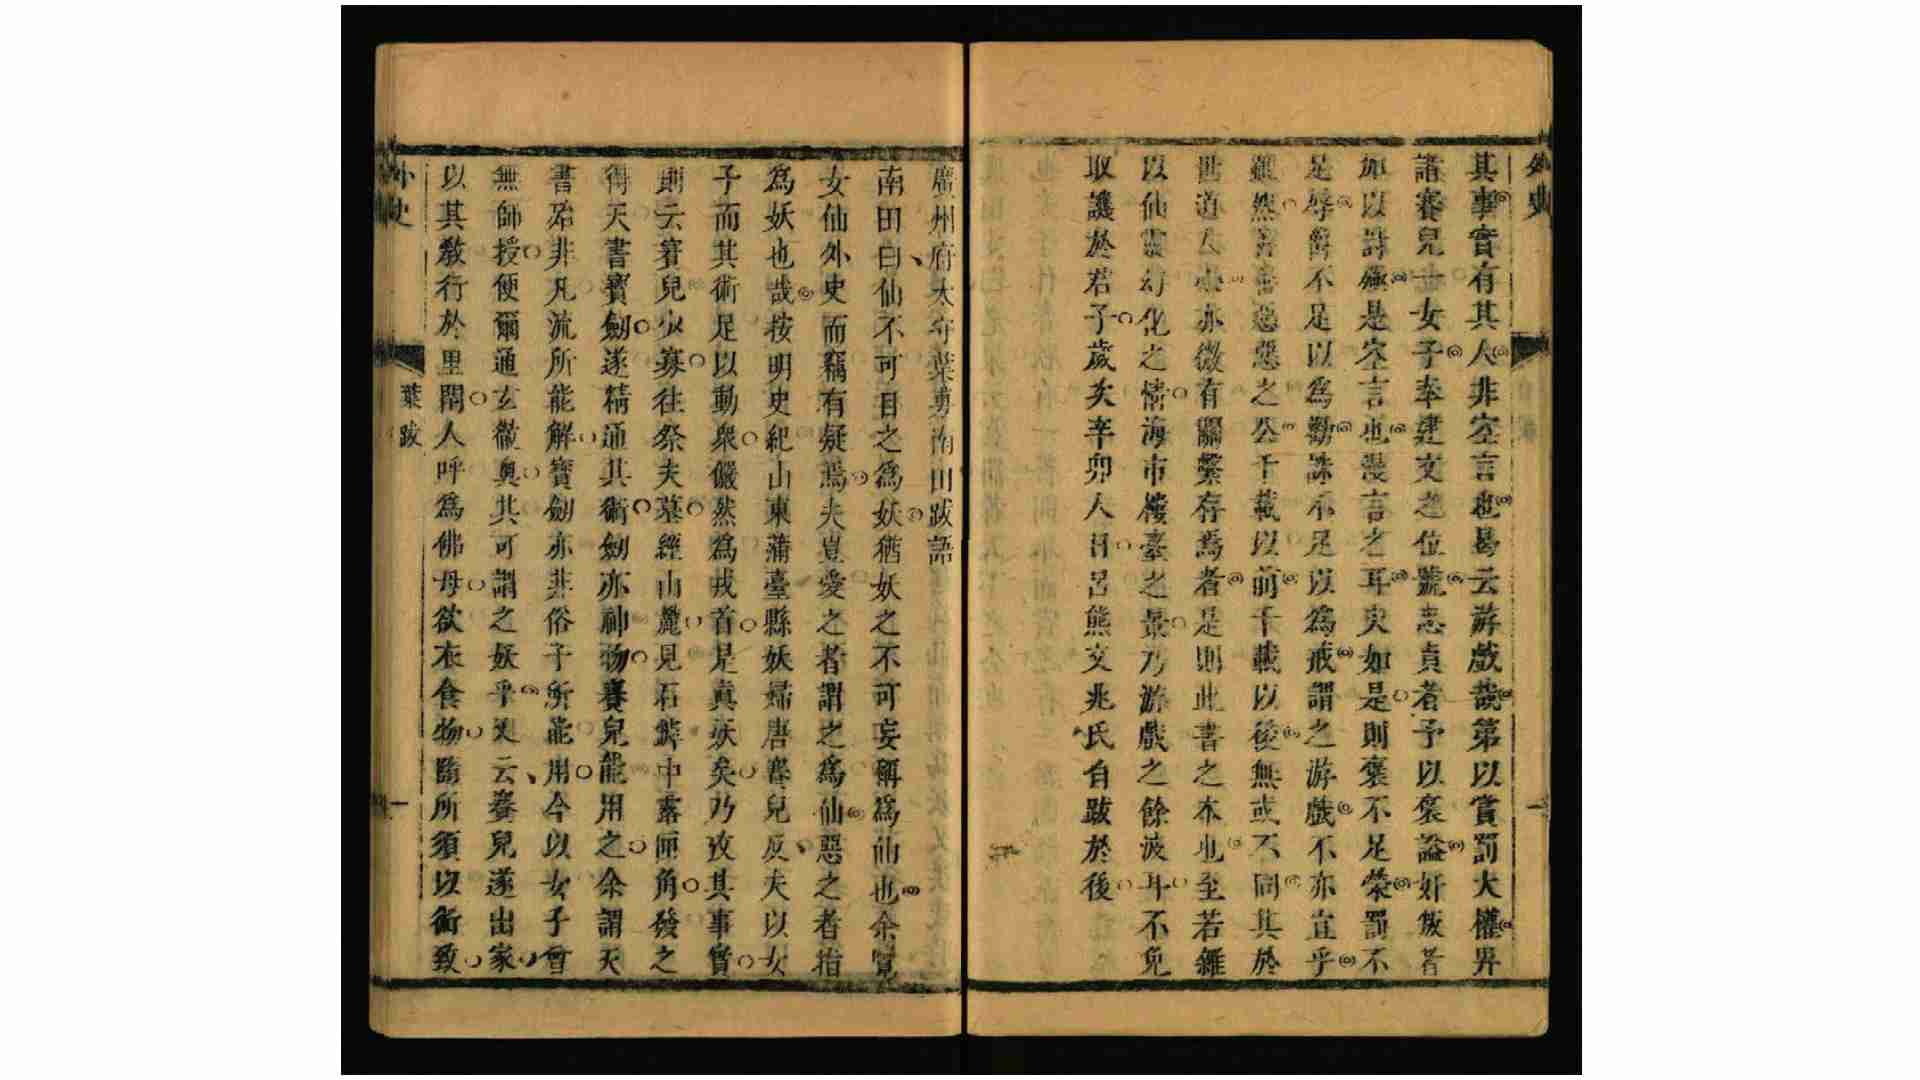 外史
其事實有其人非空言也曷云游戲哉第以賞罰大權畀
諸賽兒一女子奉建文之位號忠貞者予以褒諡奸叛者
加以誅殛是空言也漫言之耳夫如是則褒不足榮罰不
是辱賞不足以為勸誅不足以為戒謂之游戲不亦宜乎
雖然善善惡惡之公千載以前千載以後無或不同其於
世道人心亦微有關繫存焉者是則此書之本也至若雜
以仙靈幻化之情海市樓臺之景乃游戲之餘波耳不免
取譏於君子歲矣辛卯人日呂熊文兆氏自跋於後
一
廣州府太守葉旉南田跋語
南田曰仙不可目之為妖猶妖之不可妄稱為仙也余覽
女仙外史而竊有疑焉夫豈愛之者謂之為仙惡之者指
為妖也哉按明史紀山東蒲臺縣妖婦唐賽兒反夫以女
子而其術足以動衆儼然為戎首是真妖矣乃攷其事實
則云賽兒少寡往祭夫墓經山麓見石罅中露匣角發之
得天書寶劍遂精通其術劍亦神物賽兒能用之余謂天
書殆非凡流所能解寶劍亦非俗子所能用今以女子曾
無師授便爾通玄徹奧其可謂之妖乎又云賽兒遂出家
以其敎行於里閈人呼為佛母欲衣食物隨所須以術致
外史
葉跋
一